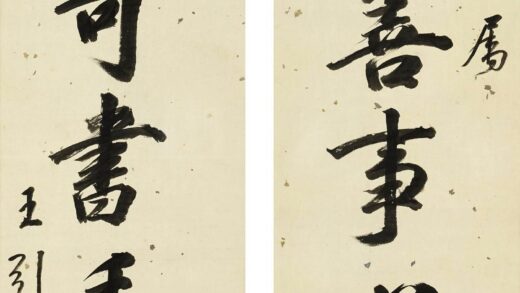 属
善事
書
王引